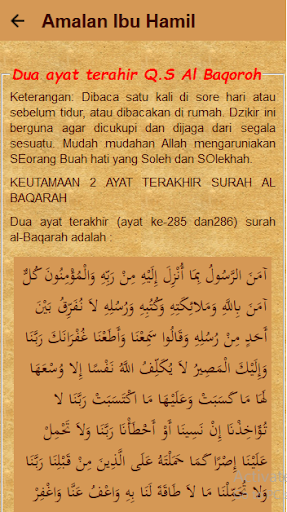 Amalan Ibu Hamil
Dua ayat terahir Q.S Al Baqoroh
Keterangan: Dibaca satu kali di sore hari atau
sebelum tidur, atau dibacakan di rumah. Dzikir ini
berguna agar dicukupi dan dijaga dari segala
sesuatu. Mudah mudahan Allah mengaruniakan
SEorang Buah hati yang Soleh dan SOlekhah.
KEUTAMAAN 2 AYAT TERAKHIR SURAH AL
BAQARAH
Dua ayat terakhir (ayat ke-285 dan286) surah
al-Baqarah adalah :
آمَنَ الرَّسُولُ بِمَا أُنْزِلَ إِلَيْهِ مِنْ رَبِّهِ وَالْمُؤْمِنُونَ كُلٌّ
آمَنَ بِاللَّهِ وَمَلَائِكَتِهِ وَكُتُبِهِ وَرُسُلِهِ لَا نُفَرِّقُ بَيْنَ
أَحَدٍ مِنْ رُسُلِهِ وَقَالُوا سَمِعْنَا وَأَطَعْنَا غُفْرَانَكَ رَبَّنَا
وَإِلَيْكَ الْمَصِيرُ لَا يُكَلِّفُ اللَّهُ نَفْسًا إِلَّا وُسْعَهَا
لَهَا مَا كَسَبَتْ وَعَلَيْهَا مَا اكْتَسَبَتْ رَبَّنَا لَا
تُؤَاخِذْنَا إِنْ نَسِينَا أَوْ أَخْطَأْنَا رَبَّنَا وَلَا تَحْمِلْ
عَلَيْنَا إِصْرًا كَمَا حَمَلْتَهُ عَلَى الَّذِينَ مِنْ قَبْلِنَا رَبَّنَا
وَلَا تُحَمِّلْنَا مَا لَا طَاقَةَ لَنَا بِهِ وَاعْفُ عَنَّا وَاغْفِرْ